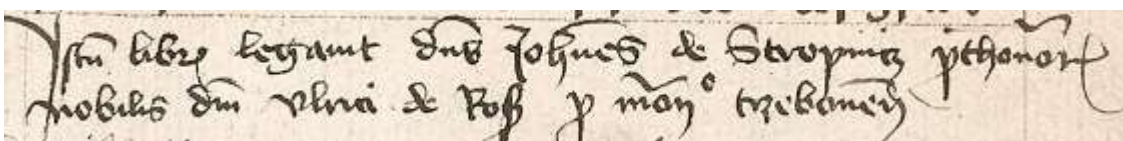 Istū libr̄ legauit dn̄s Joh̄nes de Stropnicz pthonotr̄
nobilis dn̄i Vlrici de Roß p mōn° trzebonēn̄